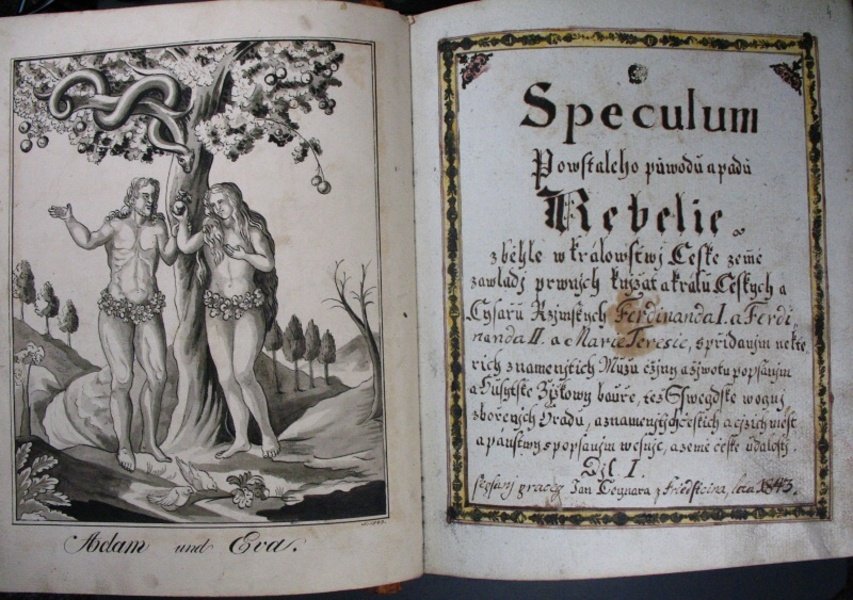 Adam und Eva.
Speculum
Powstaleho půwodů a padů
Rebelie
zběhle w králowstwj Ceske země
zawladj prwnjch knjžat a králů Ceských a
Cysařů Rzjmských Ferdinanda I. a Ferdi-
nanda II. a Marie Teresie, s přidaným nekte-
rich znamenitich Mužů čžiny a žiwotu popsanjm
a Husytske Zižkowy bauře, tež Sswegdske wognj
zbořených Hradů, a znamenitých českých a cyzich měst
a panstwy s popsanjm wesnic, a země česke udalosti.
Djl I.
sepsaný praceg Jan Cegnara z Friedsteina, leta 1843.